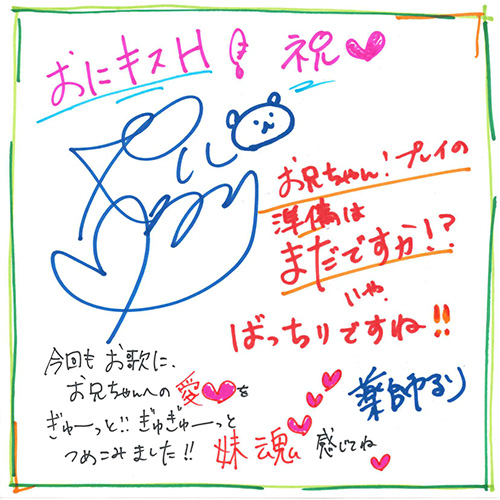 おにキスH! 祝♥
お兄ちゃん!プレイの
準備は
まだですか!?
いや、
ばっちりですね!!
今回も お歌に、
お兄ちゃんへの 愛♥を
ぎゅーっと!! ぎゅぎゅーっと
つめこみました!!
妹魂 感じてね
薬師るり